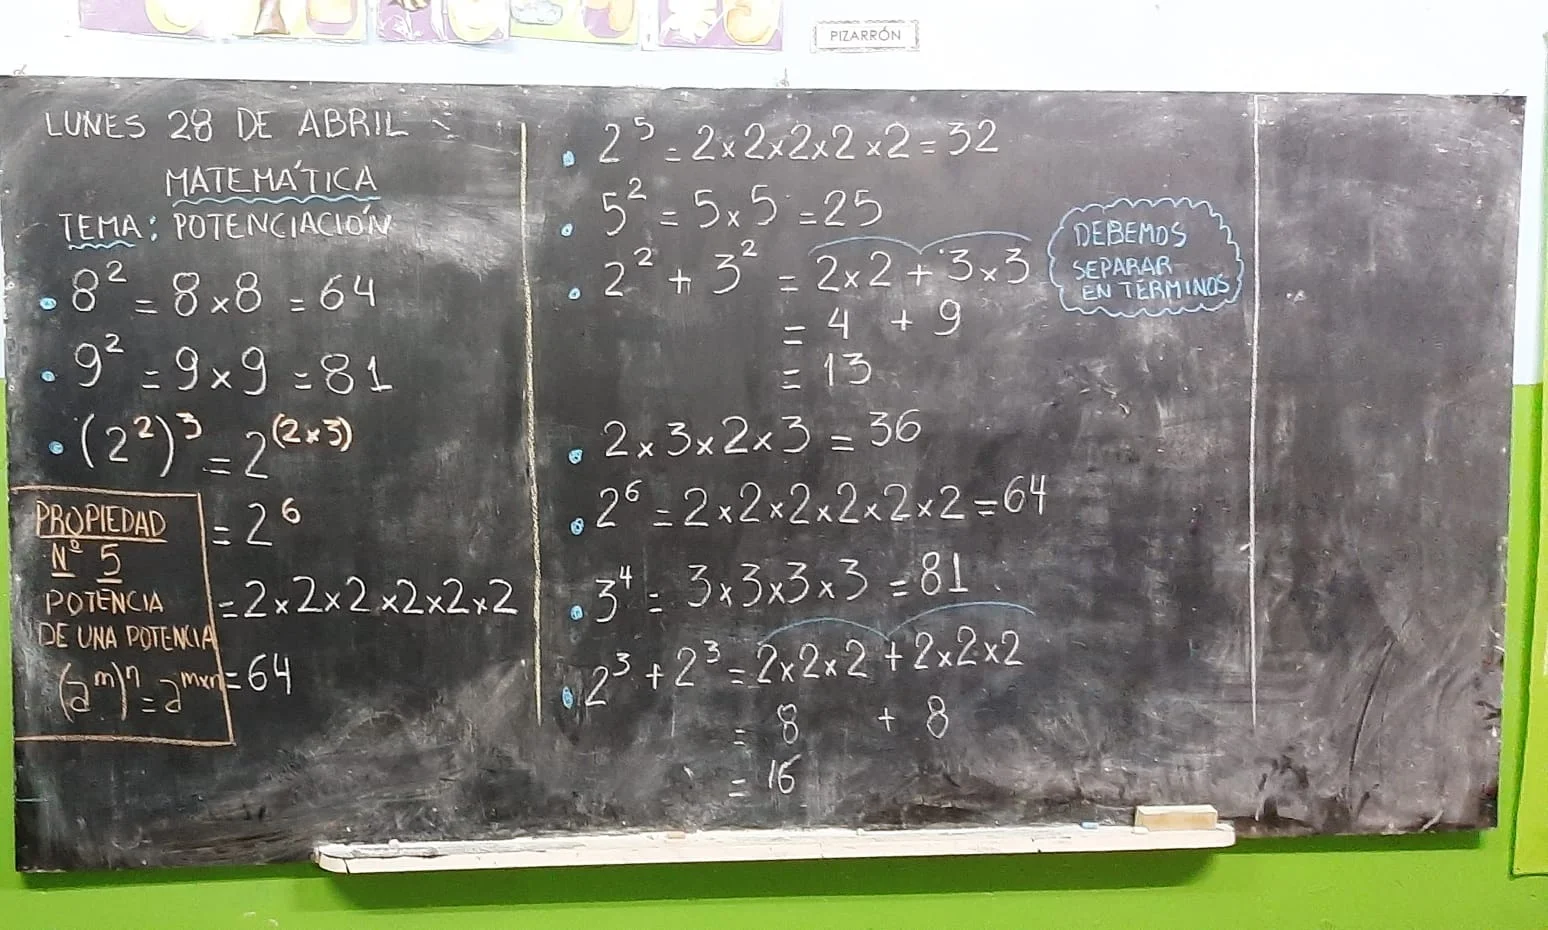 PIZARRÓN
LUNES 28 DE ABRIL
MATEMÁTICA
TEMA: POTENCIACIÓN
• 8² = 8 × 8 = 64
• 9² = 9 × 9 = 81
• (2²)³ = 2⁽²ˣ³⁾
= 2⁶
= 2 × 2 × 2 × 2 × 2 × 2
= 64
PROPIEDAD
Nº 5
POTENCIA
DE UNA POTENCIA
(aᵐ)ⁿ = aᵐˣⁿ
• 2⁵ = 2 × 2 × 2 × 2 × 2 = 32
• 5² = 5 × 5 = 25
• 2² + 3² = 2 × 2 + 3 × 3
= 4 + 9
= 13
DEBEMOS
SEPARAR
EN TÉRMINOS
• 2 × 3 × 2 × 3 = 36
• 2⁶ = 2 × 2 × 2 × 2 × 2 × 2 = 64
• 3⁴ = 3 × 3 × 3 × 3 = 81
• 2³ + 2³ = 2 × 2 × 2 + 2 × 2 × 2
= 8 + 8
= 16